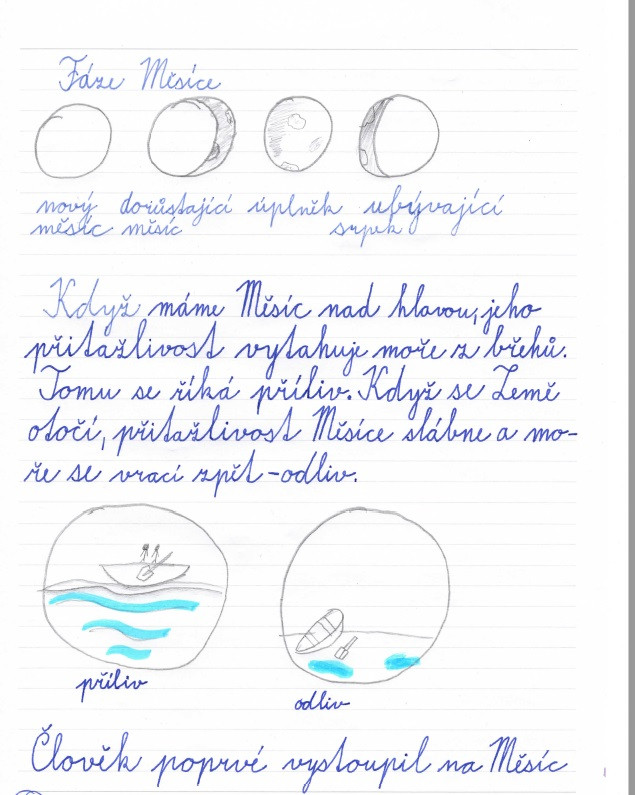 Fáze Měsíce
nový dorůstající úplněk ubývající
měsíc měsíc srpek
Když máme Měsíc nad hlavou, jeho
přitažlivost vytahuje moře z břehů.
Tomu se říká příliv. Když se Země
otočí, přitažlivost Měsíce slábne a mo-
ře se vrací zpět - odliv.
příliv
odliv
Člověk poprvé vystoupil na Měsíc